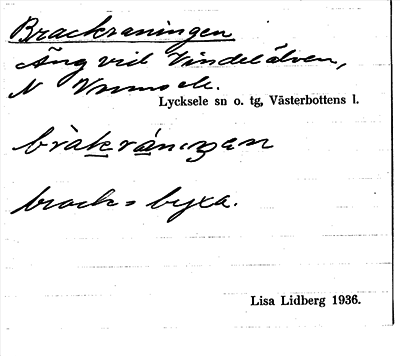 Brackraningen
Äng vid Vindelälven,
N Vrmsele.
Lycksele sn o. tg, Västerbottens l.
bràkránıŋan
brack = byxa.
Lisa Lidberg 1936.